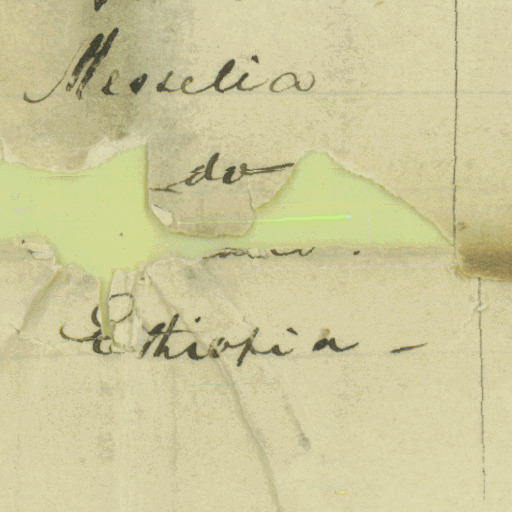 Messelia
do
Ethiopia -